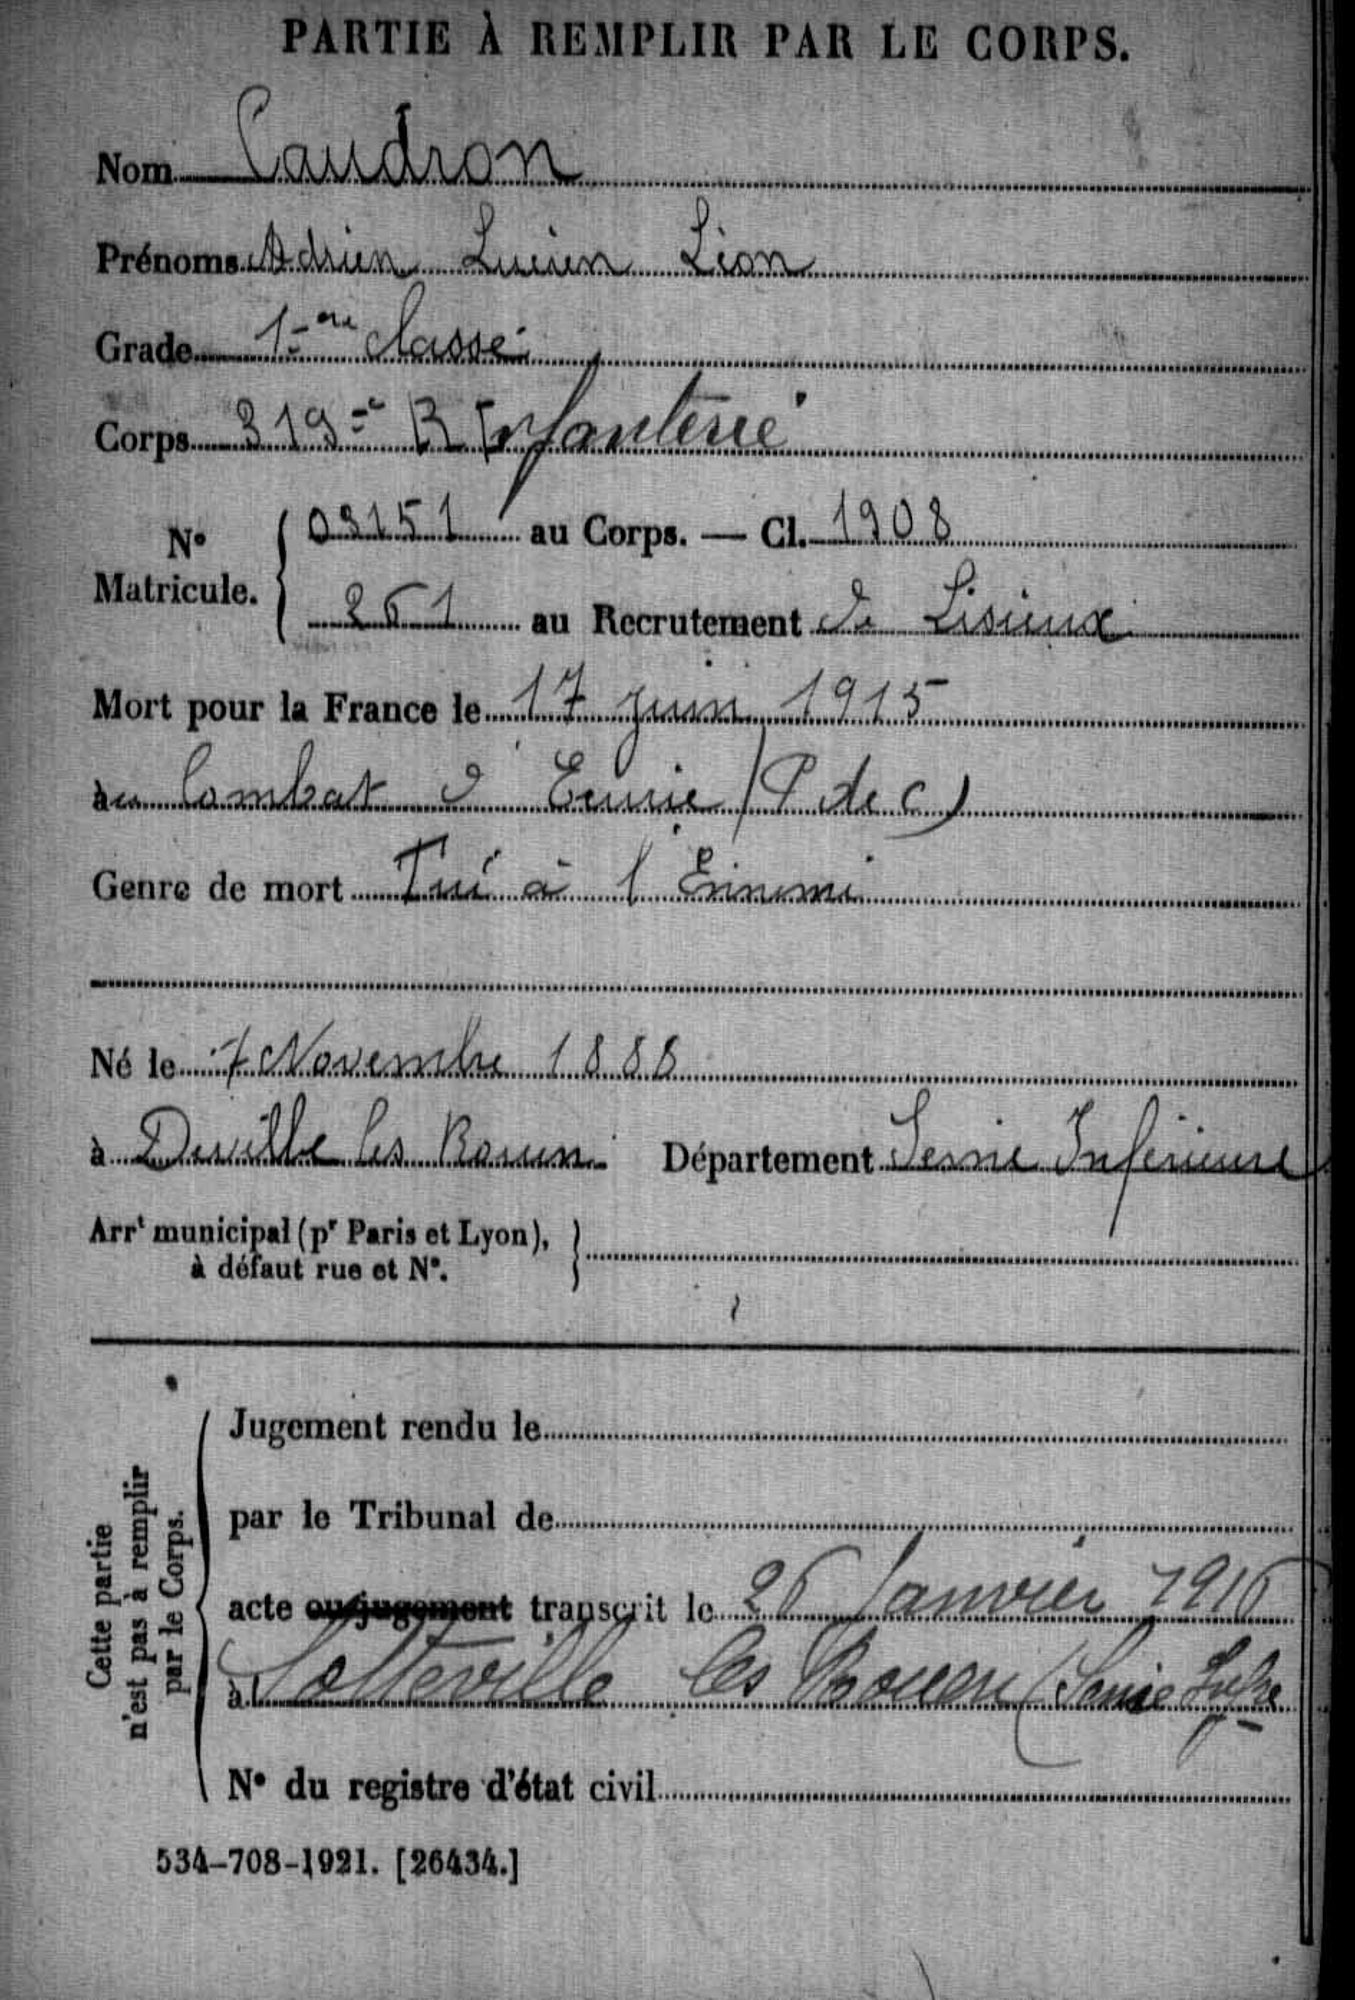 PARTIE À REMPLIR PAR LE CORPS.
Nom Caudron
Prénoms Adrien Lucien Léon
Grade 1ère classe
Corps 319e R Infanterie
No Matricule. 03151 au Corps. — Cl. 1908
261 au Recrutement de Lisieux
Mort pour la France le 17 juin 1915
au Combat d' Ecurie (P de C)
Genre de mort Tué à l'Ennemi
Né le 7 Novembre 1888
à Deville les Rouen Département Seine Inférieure
Arrt municipal (pr Paris et Lyon),
à défaut rue et No.
Cette partie
n'est pas à remplir
par le Corps.
Jugement rendu le
par le Tribunal de
acte ou jugement transcrit le 26 Janvier 1916
à Sotteville les Rouen (Seine Infre
No du registre d'état civil
534-708-1921. [26434.]